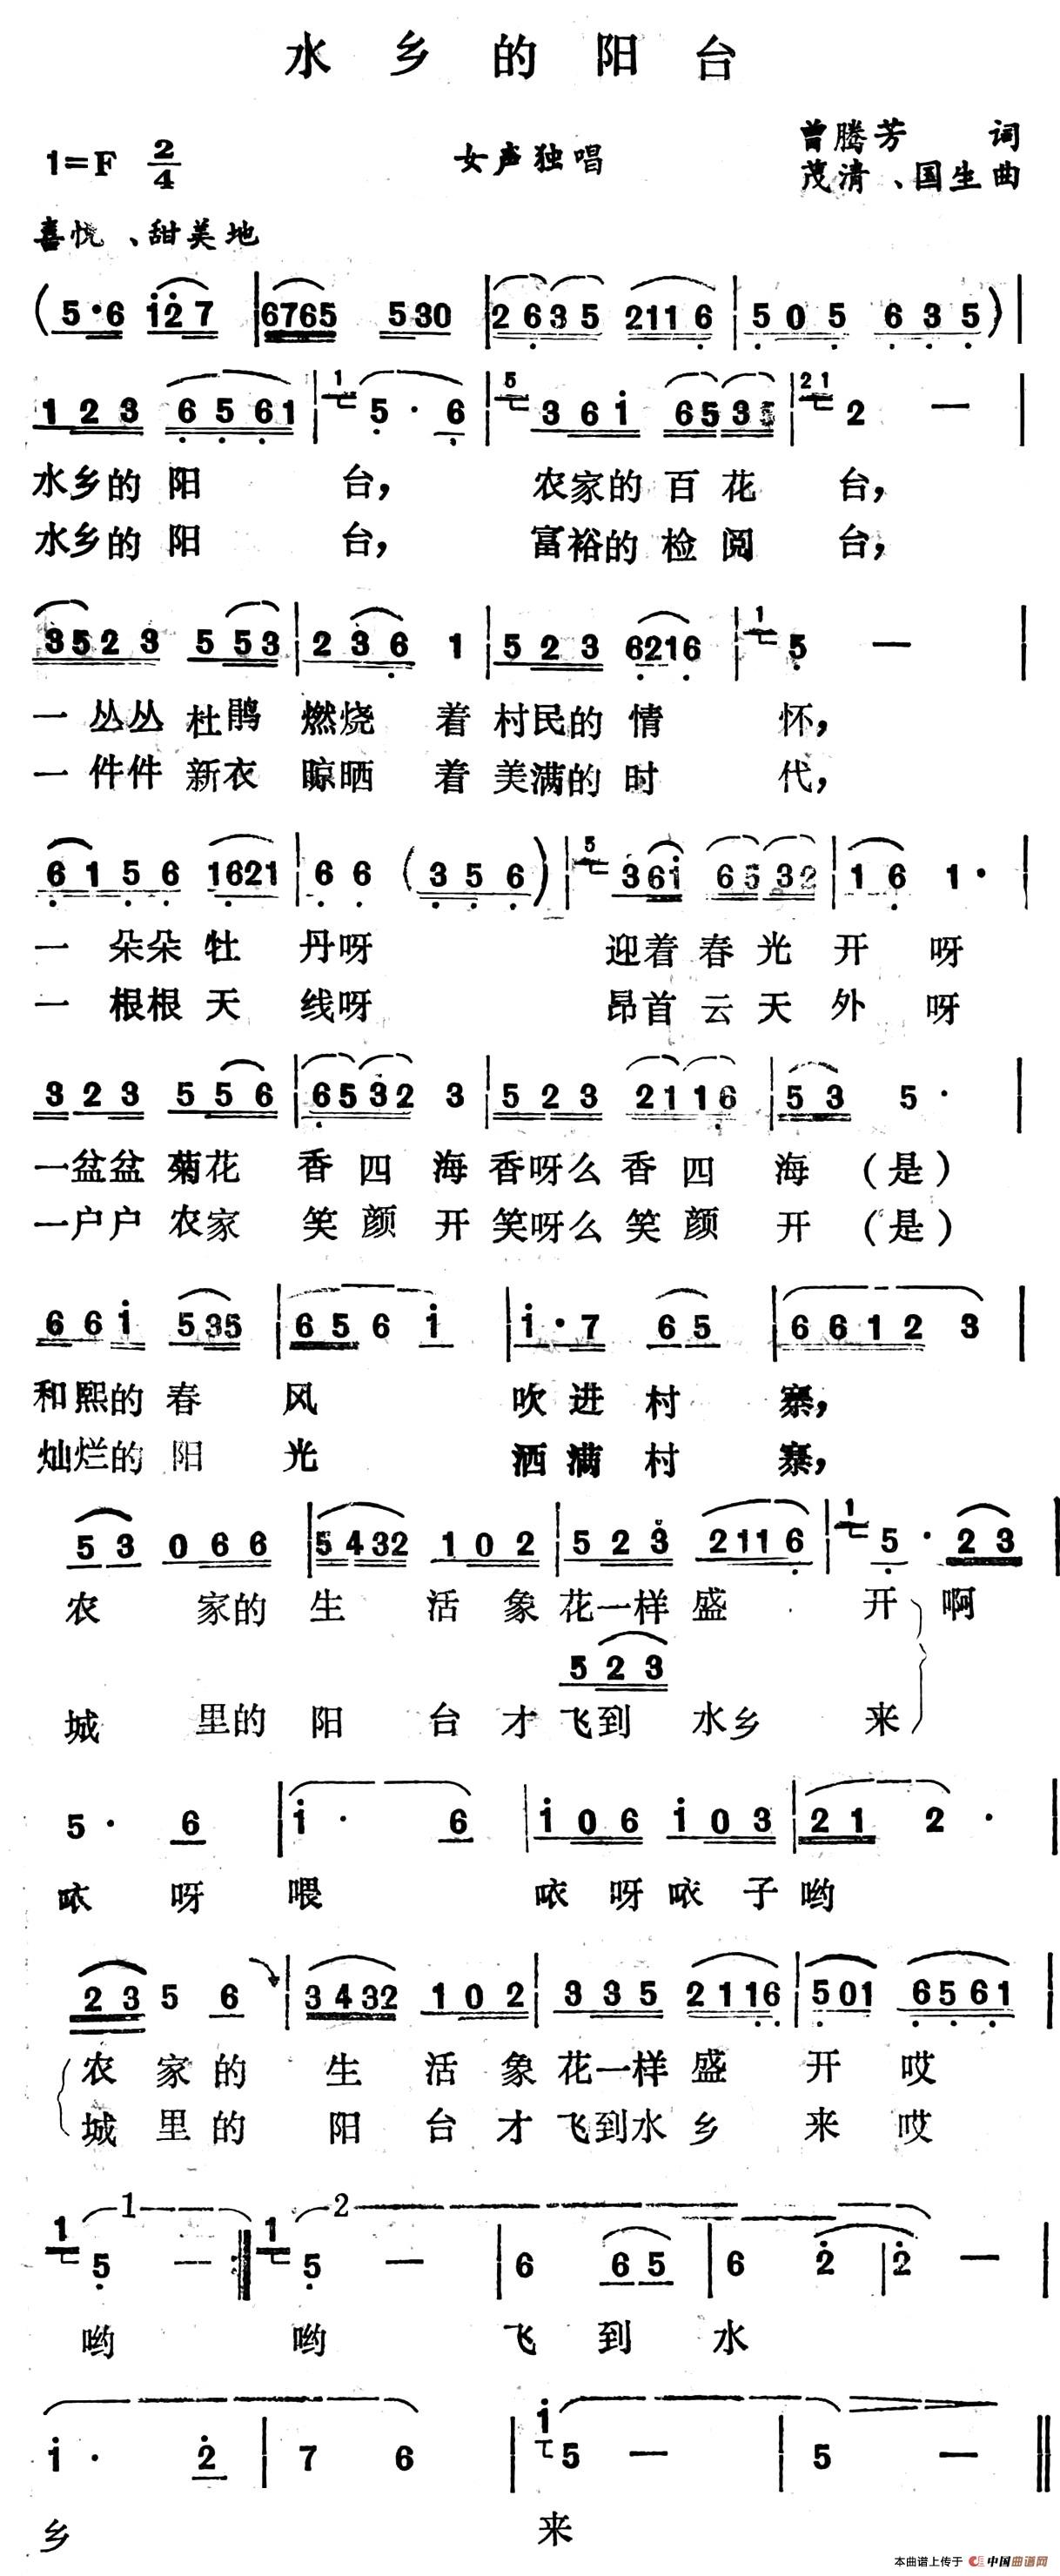 水乡的阳台
1=F 2/4 女声独唱 曾腾芳 词
茂清、国生曲
喜悦、甜美地
(5·6 i̇2̇7 | 6765 530 | 2635 2116 | 505 635) |
123 6561 | 5·6 | 36i̇ 6535 | 2 — |
水乡的阳台，农家的百花台，
水乡的阳台，富裕的检阅台，
3523 553 | 236 1 | 523 6216 | 5 — |
一丛丛杜鹃燃烧着村民的情怀，
一件件新衣晾晒着美满的时代，
6156 1621 | 66 (356) | 36i̇ 6532 | 16 1· |
一朵朵牡丹呀迎着春光开呀
一根根天线呀昂首云天外呀
323 556 | 6532 3 | 523 2116 | 53 5· |
一盆盆菊花香四海香呀么香四海（是）
一户户农家笑颜开笑呀么笑颜开（是）
66i̇ 535 | 656 i̇ | i̇·7 65 | 6612 3 |
和熙的春风吹进村寨，
灿烂的阳光洒满村寨，
53 066 | 5432 102 | 523 2116 | 5·23 |
农家的生活象花一样盛开啊
523
城里的阳台才飞到水乡来
5·6 | i̇·6 | i̇06 i̇03 | 21 2· |
咴呀喂咴呀咴子哟
23 5 6 | 3432 102 | 335 2116 | 501 6561 |
农家的生活象花一样盛开哎
城里的阳台才飞到水乡来哎
1 2
5 — :| 5 — | 6 65 | 6 2̇ | 2̇ — |
哟哟飞到水
i̇·2̇ | 7 6 | 5 — | 5 — ‖
乡来
本曲谱上传于 中国曲谱网